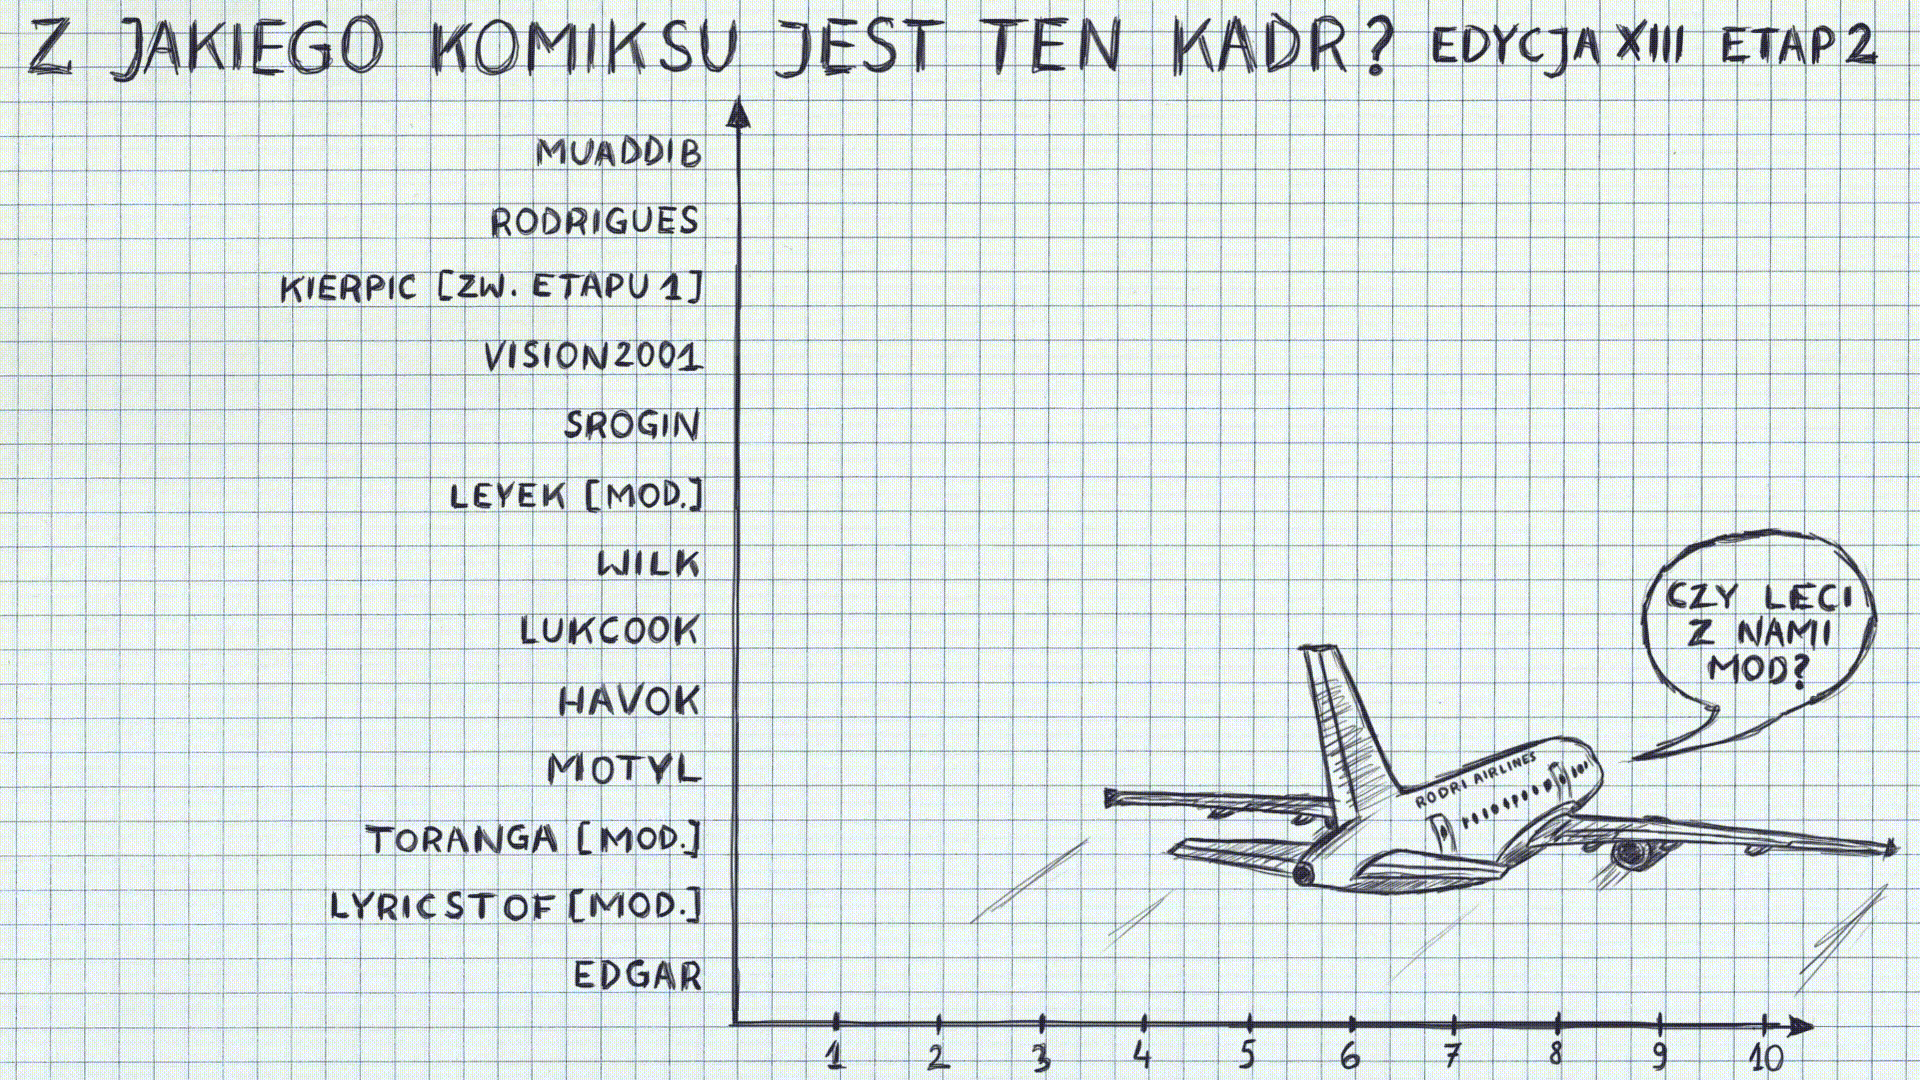 Z JAKIEGO KOMIKSU JEST TEN KADR? EDYCJA XIII ETAP 2
MUADDIB
RODRIGUES
KIERPIC [ZW. ETAPU 1]
VISION2001
SROGIN
LEYEK [MOD.]
WILK
LUKCOOK
HAVOK
MOTYL
TORANGA [MOD.]
LYRICSTOF [MOD.]
EDGAR
CZY LECI
Z NAMI
MOD?
RODRI AIRLINES
1 2 3 4 5 6 7 8 9 10